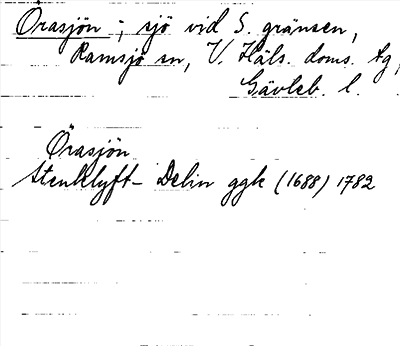 Örasjön -, sjö vid S. gränsen,
Ramsjö sn, V. Häls. doms. tg,
Gävleb. l.
Örasjön
Stenklyft- Delin ggk (1688) 1782